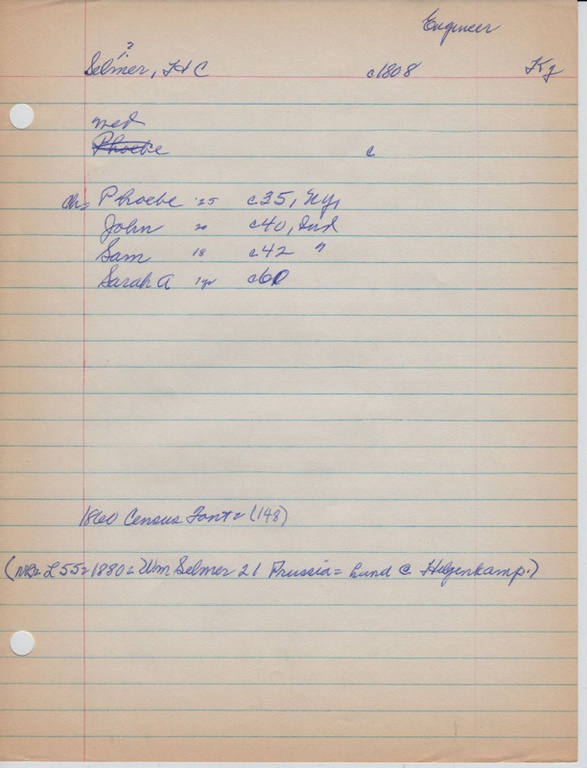 Engineer
?
Selmer, H C c1808 Ky
med
Phoebe c
Ch= Phoebe 25 c35, Ky,
John 20 c40, Ind
Sam 18 c42 "
Sarah A 1yr c60
1860 Census Font= (148)
(NB= L55=1880= Wm Selmer 21 Prussia= hand @ Hilgenkamp.)